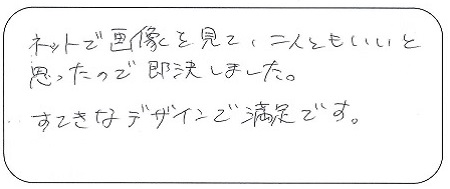 ネットで画像を見て、二人ともいいと
思ったので即決しました。
すてきなデザインで満足です。